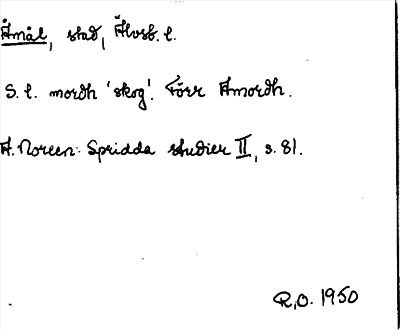 Åmål, stad, Älvsb. l.
S. l. mordh 'skog'. Förr Åmordh.
A. Noreen: Spridda studier II, s. 81.
R.O. 1950